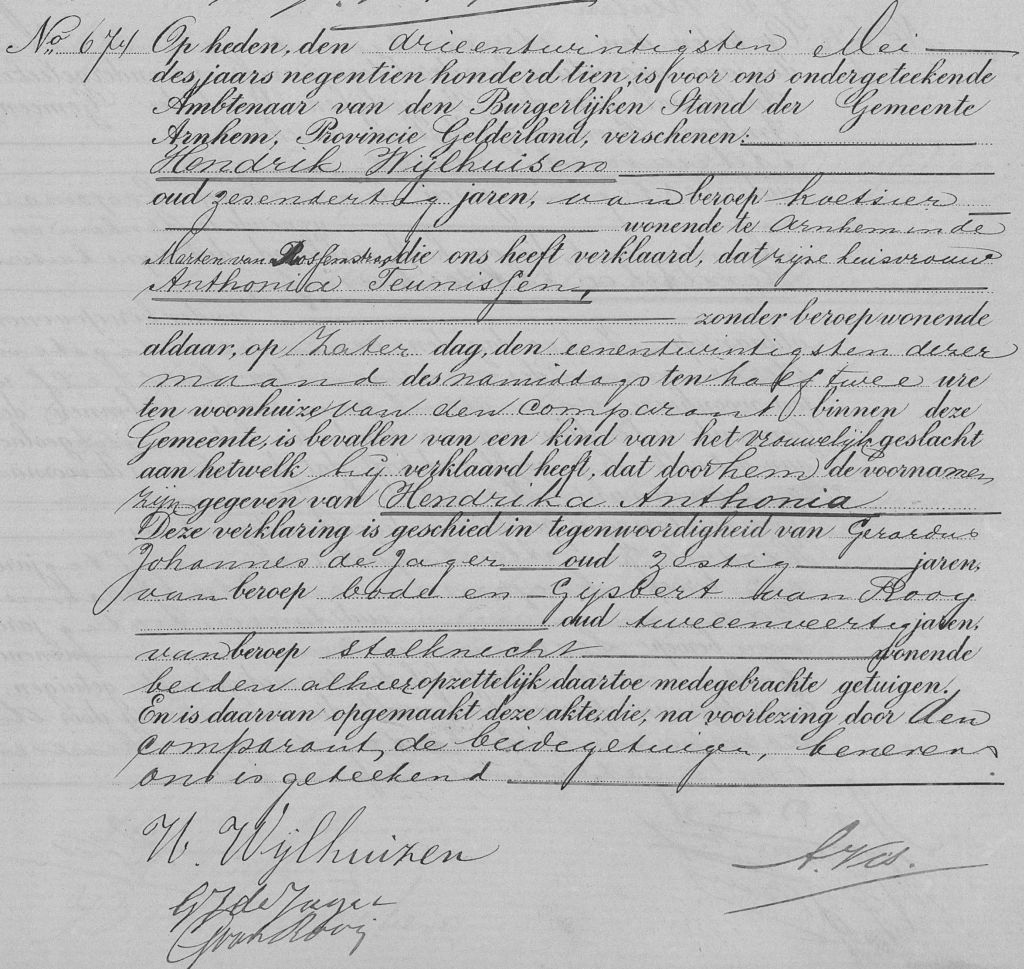 No 674 Op heden, den drieentwintigsten Mei
des jaars negentien honderd tien, is voor ons ondergeteekende
Ambtenaar van den Burgerlijken Stand der Gemeente
Arnhem, Provincie Gelderland, verschenen:
Hendrik Wijlhuisen
oud zesendertig jaren, van beroep koetsier
wonende te Arnhem in de
Marten van Rossemstraat die ons heeft verklaard, dat zijne huisvrouw
Anthonia Teunissen,
zonder beroep wonende
aldaar, op Zaterdag, den eenentwintigsten dezer
maand des namiddags ten half twee ure
ten woonhuize van den comparant binnen deze
Gemeente, is bevallen van een kind van het vrouwelijk geslacht
aan hetwelk hij verklaard heeft, dat door hem de voornamen
zijn gegeven van Hendrika Anthonia
Deze verklaring is geschied in tegenwoordigheid van Gerardus
Johannes de Jager oud zestig jaren,
van beroep bode en Gijsbert van Rooy
oud tweeenveertig jaren,
van beroep stalknecht wonende
beiden alhier opzettelijk daartoe medegebrachte getuigen.
En is daarvan opgemaakt deze akte, die, na voorlezing door den
comparant, de beide getuigen, benevens
ons is geteekend
H. Wijlhuizen
A. Vos.
GJ de Jager
G van Rooij